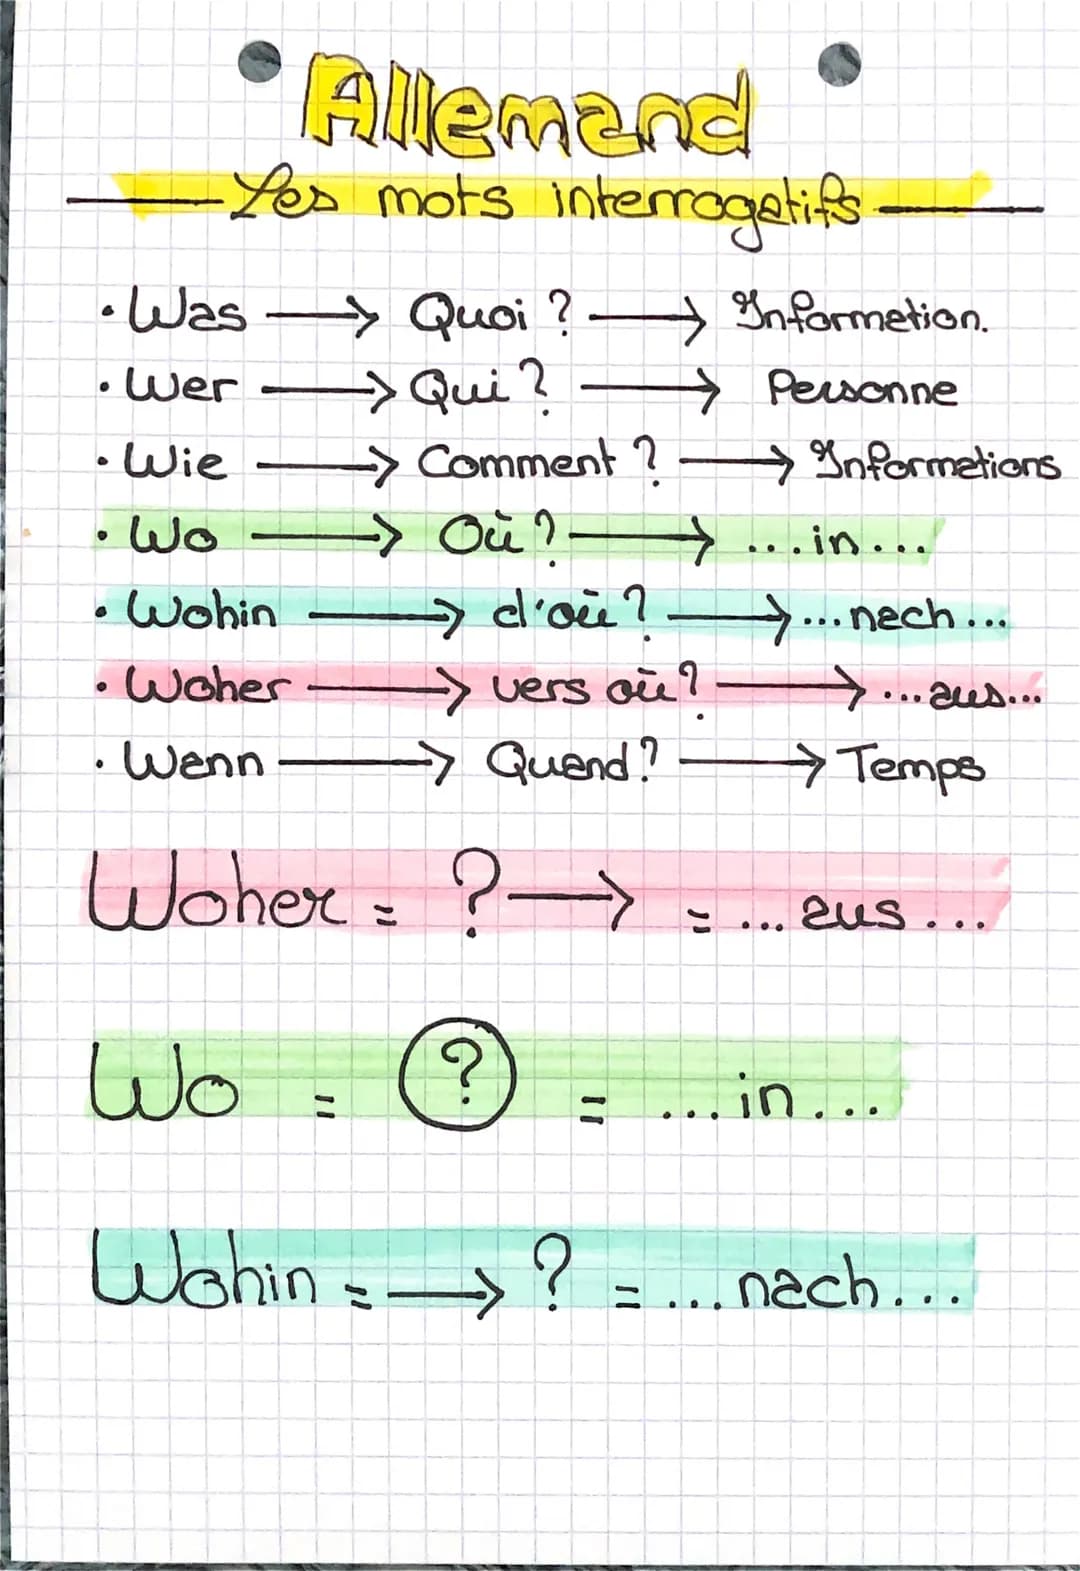 Allemand
Les mots interrogatifs
• Was → Quoi ? → Information.
• Wer → Qui ? → Personne
• Wie → Comment ? → Informations
• Wo → Où ? → ...in...
• Wohin → d'où ? → ...nach...
• Woher → vers où ? → ...aus...
• Wann → Quand ? → Temps
Woher = ? → = ... aus ...
Wo = ? = ...in...
Wohin = → ? = ... nach...